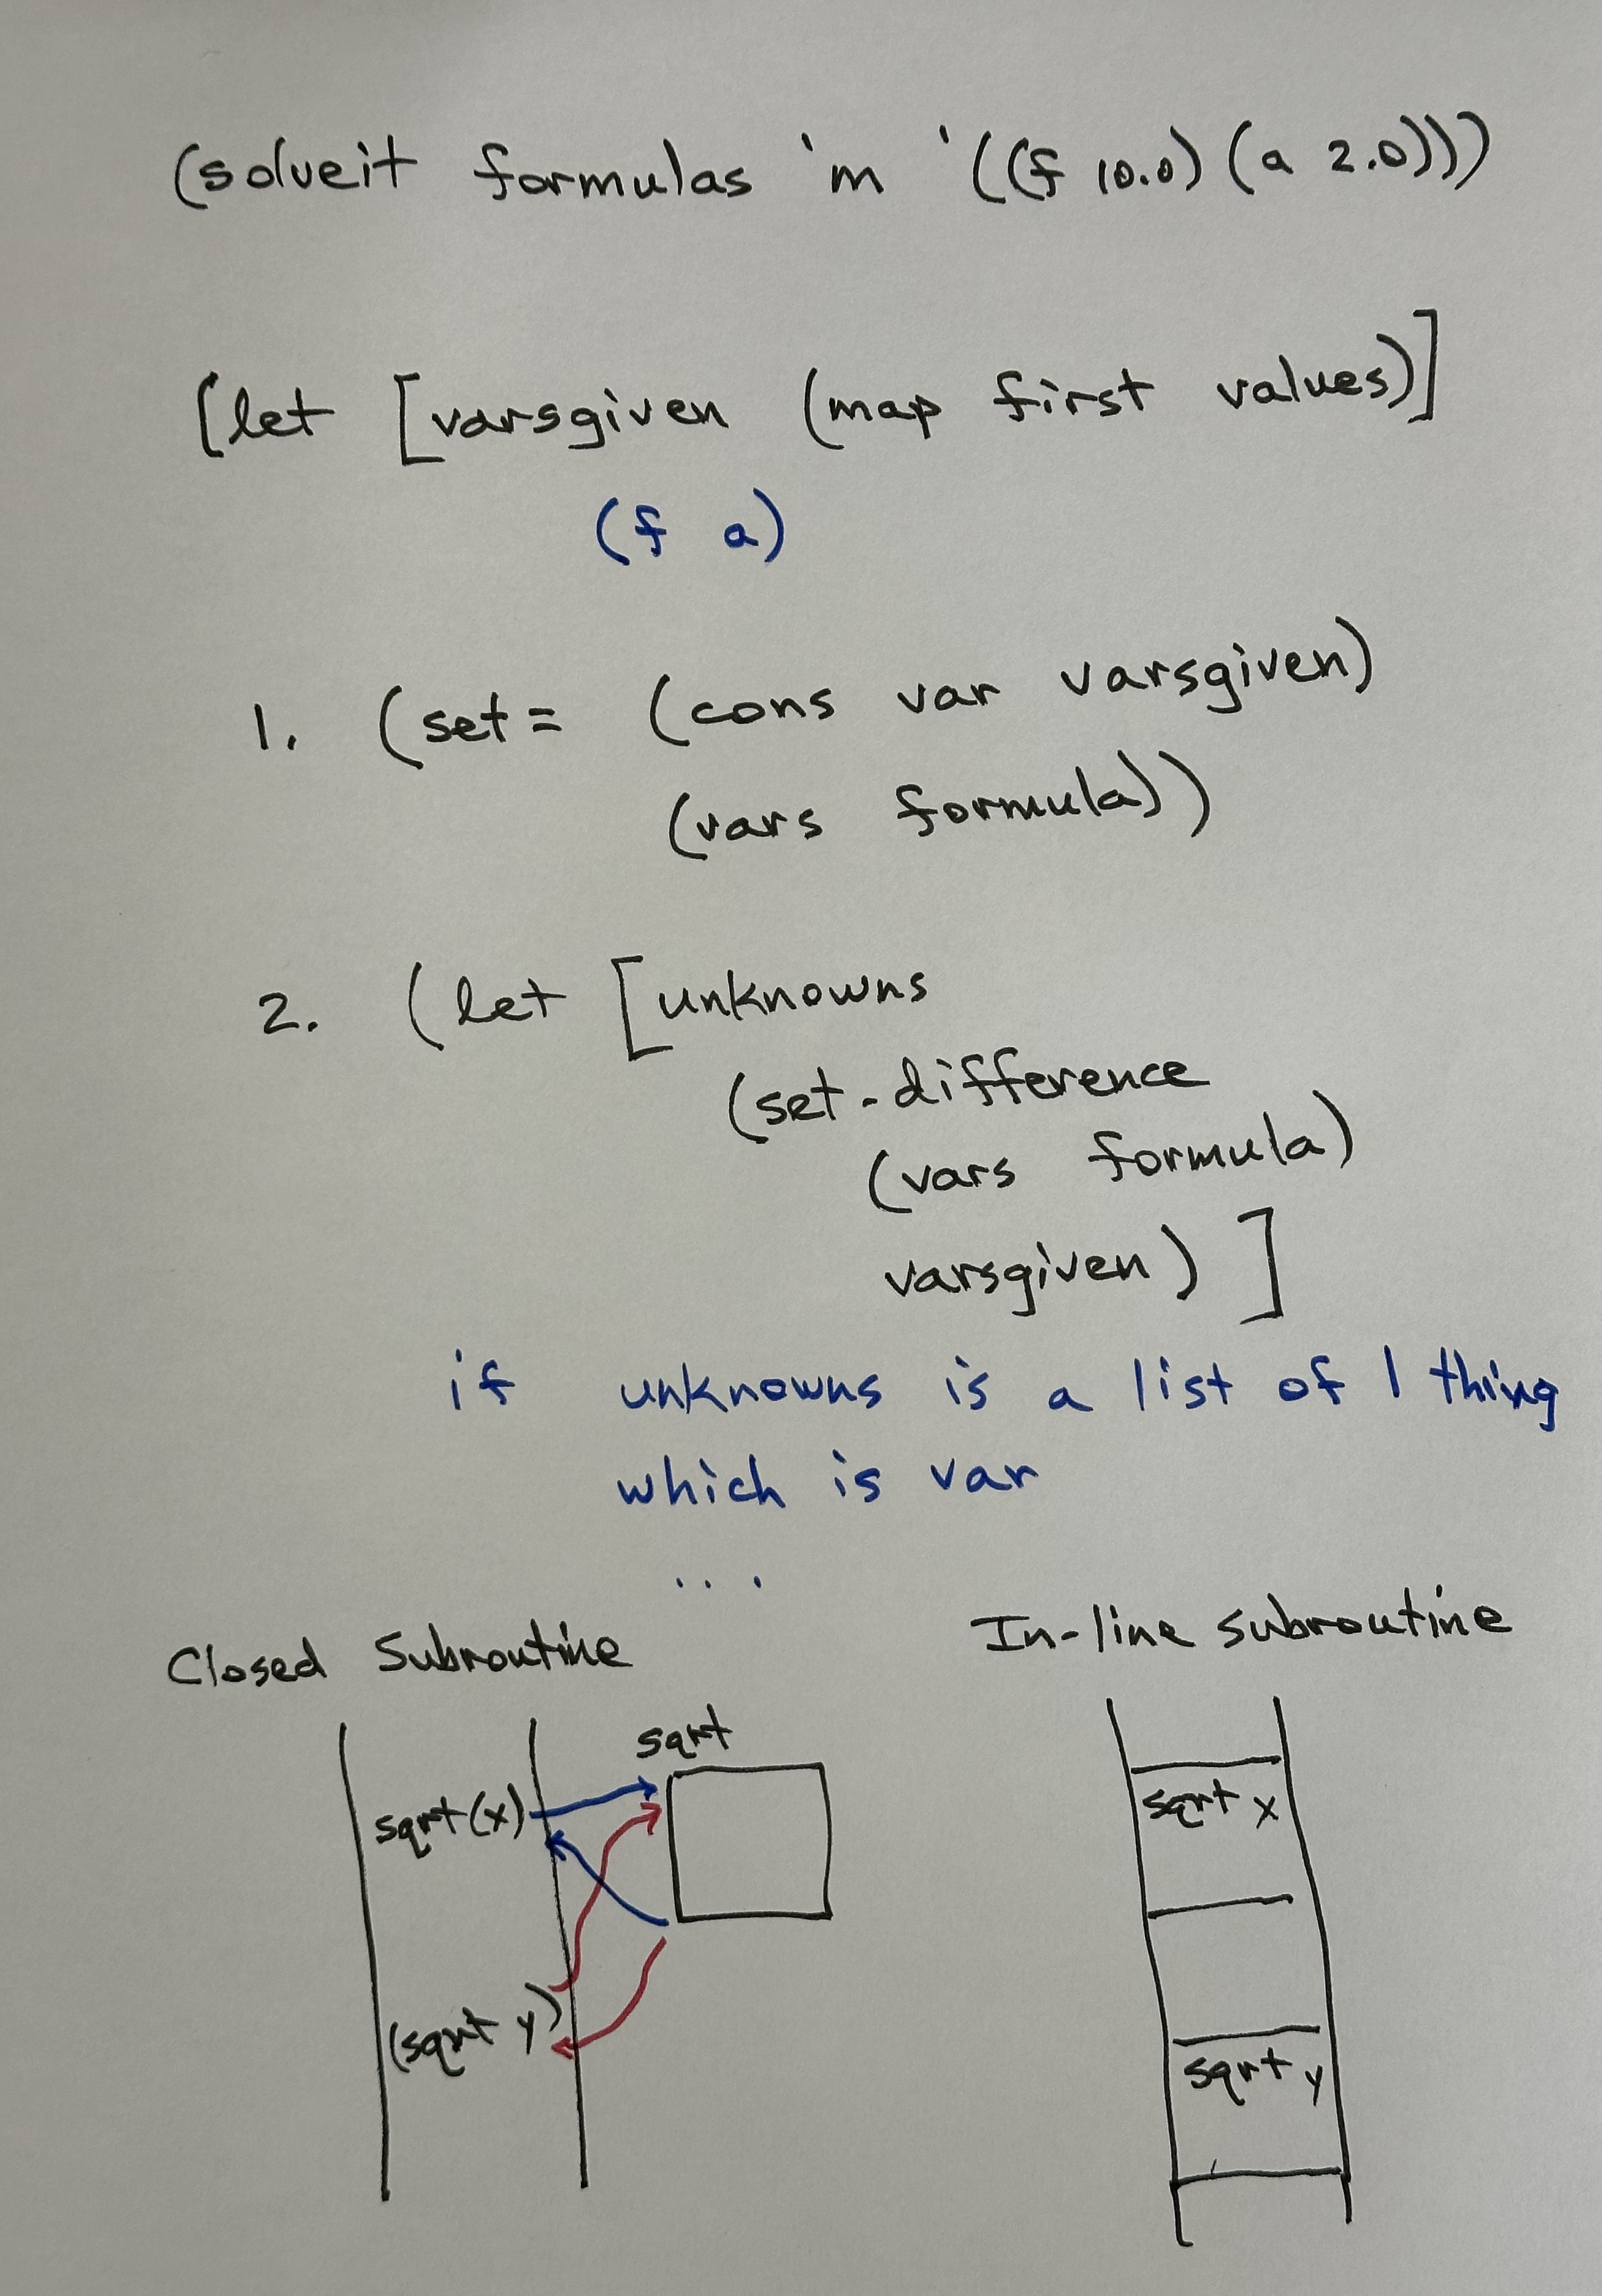 (solveit formulas 'm '((f 10.0) (a 2.0)))
(let [varsgiven (map first values)]
(f a)
1. (set= (cons var varsgiven)
(vars formula))
2. (let [unknowns
(set-difference
(vars formula)
varsgiven) ]
if unknowns is a list of 1 thing
which is var
...
Closed Subroutine
In-line subroutine
sqrt
sqrt(x)
(sqrt y)
sqrt x
sqrt y